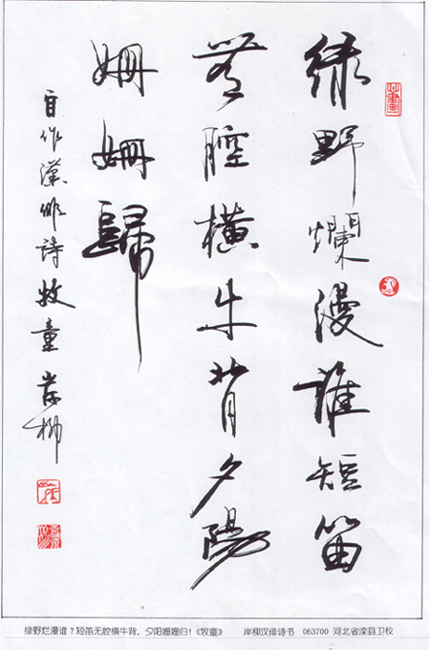 緑野爛漫誰短笛
無腔橫牛背夕陽
姍姍歸
自作漢俳詩牧童 岸柳
绿野烂漫谁？短笛无腔横牛背，夕阳姗姗归！《牧童》 岸柳汉俳诗书 063700 河北省滦县卫校